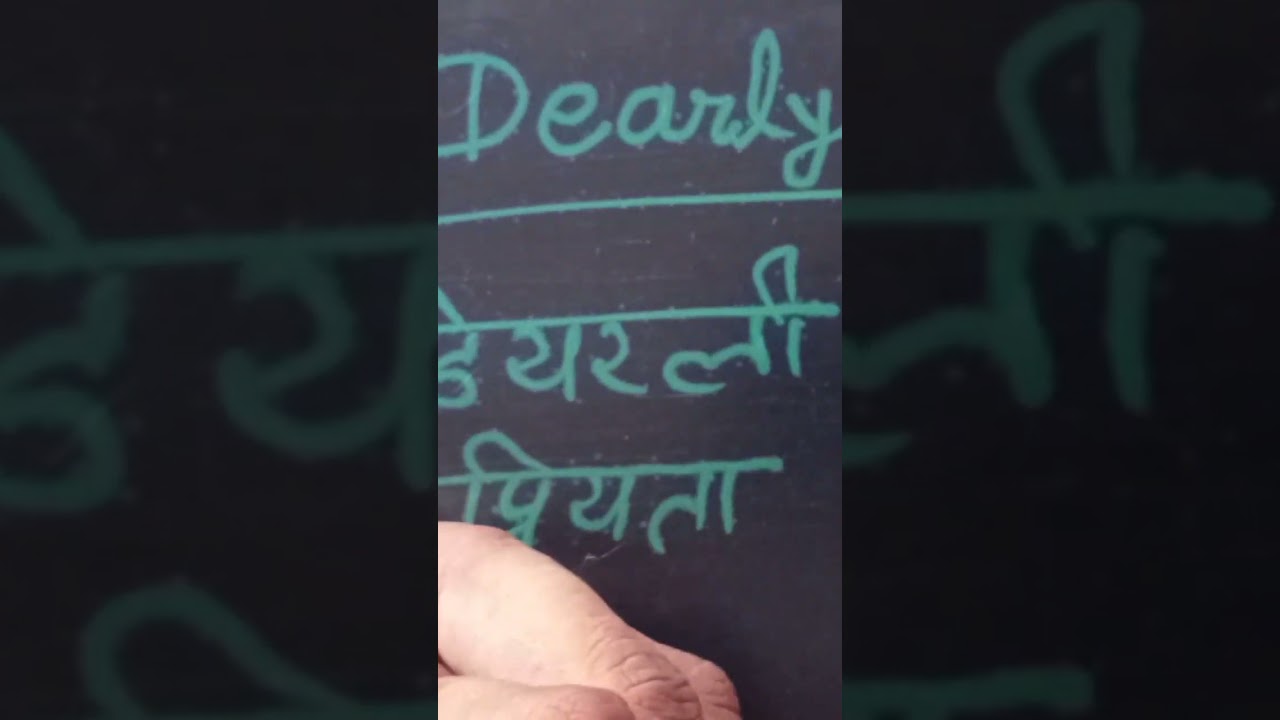 Dearly
डेयरली
प्रियता